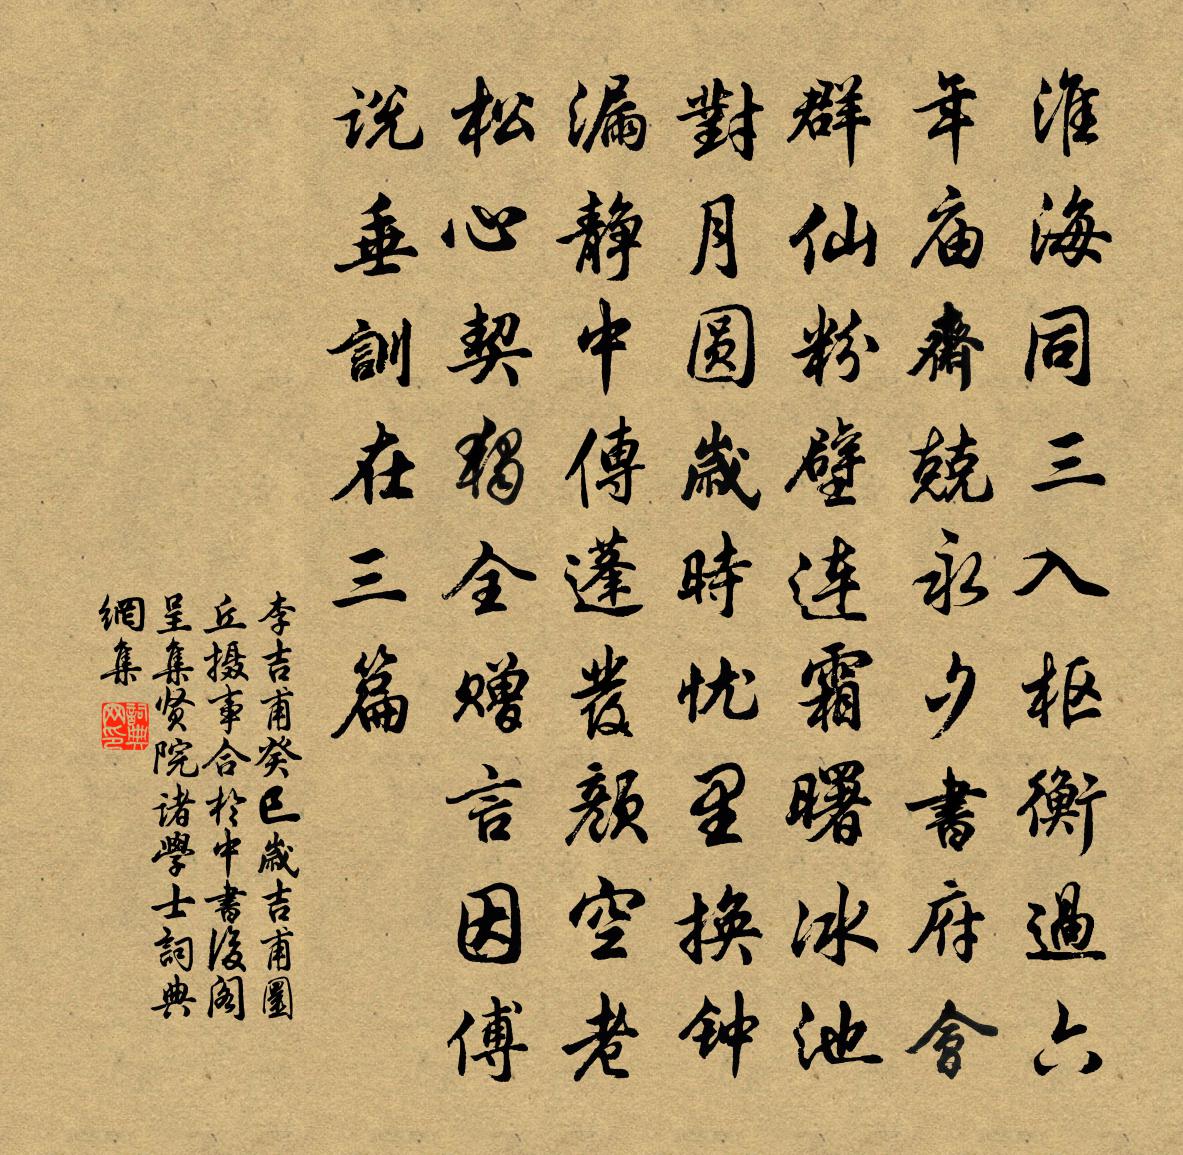 淮海同三入枢衡過六
年庙齋兢永夕書府會
群仙粉壁连霜曙冰池
對月圆歲時忧里換钟
漏静中傳蓬發顔空老
松心契独全赠言因傅
说垂訓在三篇
李吉甫癸巳歲吉甫圜
丘摄事合於中書後阁
呈集贤院诸學士詞典
網集
詞典网印